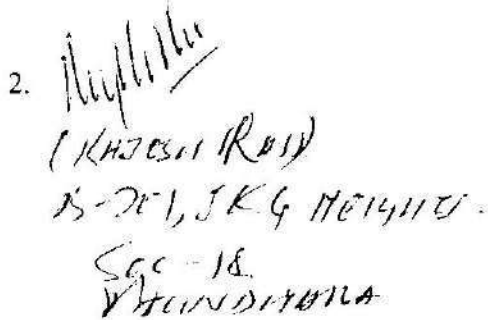 2.
(RAJESH RAI)
JKG HEIGHTS.
Sec-18
VASUNDHARA